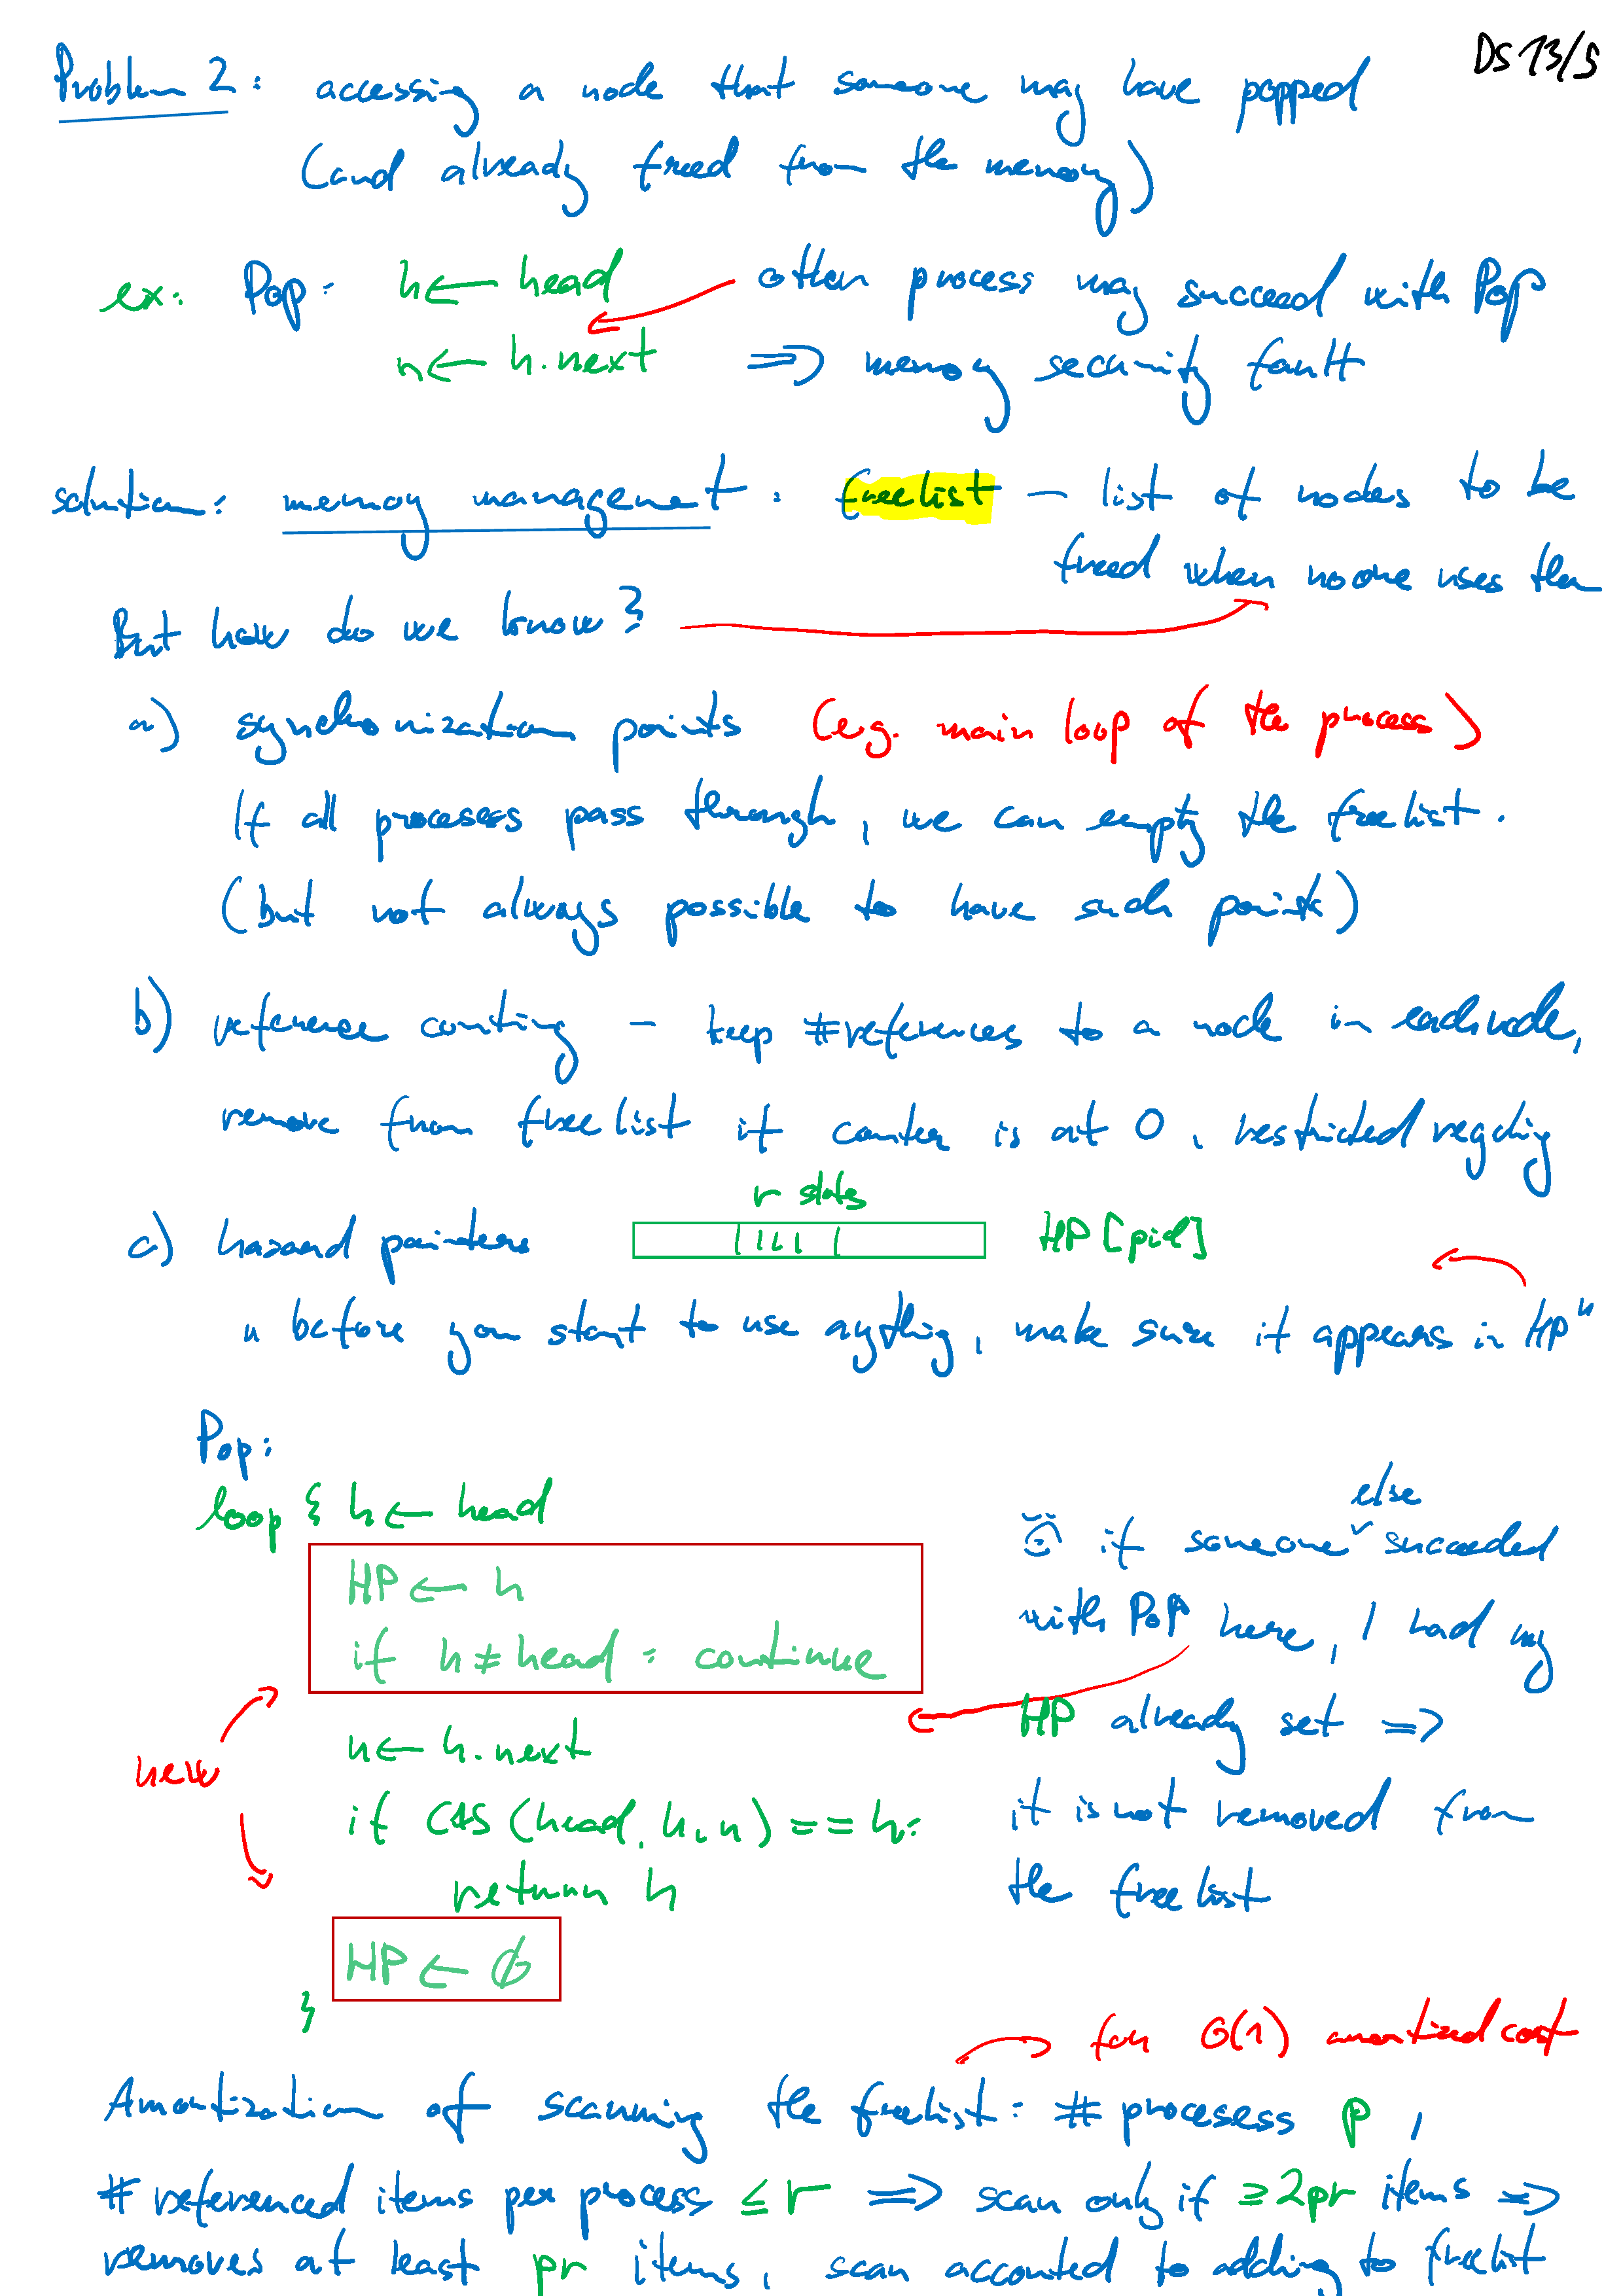 DS 13/5
Problem 2: accessing a node that someone may have popped
(and already freed from the memory)
ex: Pop: h ← head other process may succeed with Pop
n ← h.next ⇒ memory security fault
solution: memory management: freelist – list of nodes to be
freed when noone uses them
But how do we know?
a) synchronization points (e.g. main loop of the process)
If all processes pass through, we can empty the freelist.
(but not always possible to have such points)
b) reference counting – keep #references to a node in each node,
remove from freelist if counter is at 0, restricted
r slots
c) hazard pointers HP[pid]
"before you start to use anything, make sure it appears in HP"
Pop:
loop { h ← head
HP ← h
if h ≠ head: continue
n ← h.next
if CAS(head, h, n) == h:
return h
HP ← ∅
}
new
if someone else succeeded
with Pop here, I had my
HP already set ⇒
it is not removed from
the freelist
for Θ(1) amortized cost
Amortization of scanning the freelist: # processes p,
# referenced items per process ≤ r ⇒ scan only if ≥ 2pr items ⇒
removes at least pr items, scan accounted to adding to freelist